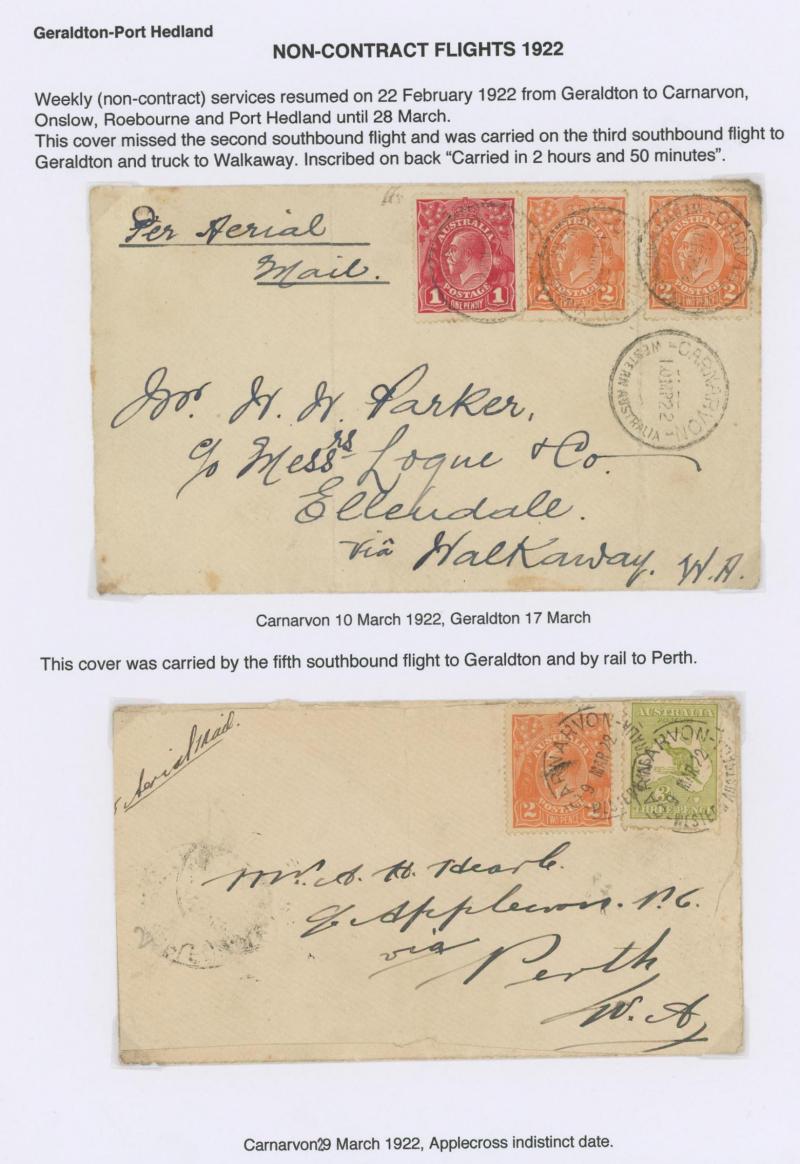 Geraldton-Port Hedland
NON-CONTRACT FLIGHTS 1922
Weekly (non-contract) services resumed on 22 February 1922 from Geraldton to Carnarvon,
Onslow, Roebourne and Port Hedland until 28 March.
This cover missed the second southbound flight and was carried on the third southbound flight to
Geraldton and truck to Walkaway. Inscribed on back “Carried in 2 hours and 50 minutes”.
Per Aerial
Mail.
AUSTRALIA
POSTAGE
1 1
ONE PENNY
AUSTRALIA
POSTAGE
2 2
TWO PENCE
AUSTRALIA
POSTAGE
2 2
TWO PENCE
CARNARVON
10 MR 22
WESTERN AUSTRALIA
Mr. W. W. Parker,
c/o Messrs Logue & Co.
Ellendale.
via Walkaway. W.A.
Carnarvon 10 March 1922, Geraldton 17 March
This cover was carried by the fifth southbound flight to Geraldton and by rail to Perth.
Aerial Mail.
AUSTRALIA
POSTAGE
2 2
TWO PENCE
AUSTRALIA
3
THREE PENCE
CARNARVON
9 MAR 22
CARNARVON
MAR 22
Mr. A. H. Hearle.
c/o Applecross. P.O.
via
Perth
W. A
Carnarvon29 March 1922, Applecross indistinct date.